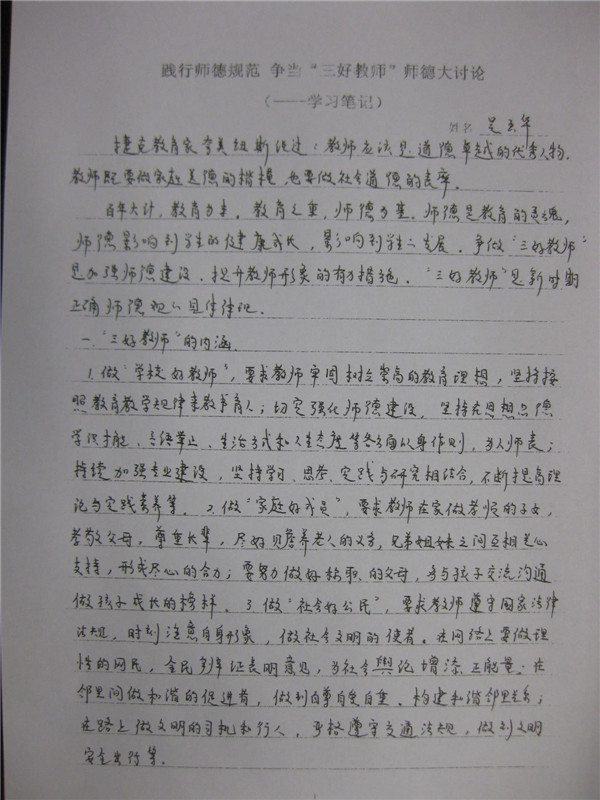 践行师德规范 争当“三好教师”师德大讨论
(——学习笔记)
姓名
捷克教育家夸美纽斯说过:教师应该是道德卓越的优秀人物.
教师既要做家庭美德的楷模,也要做社会道德的表率.
百年大计,教育为本。教育之重,师德为基.师德是教育的灵魂,
师德影响到学生的健康成长,影响到学生的发展.争做“三好教师”
是加强师德建设、提升教师形象的有力措施。“三好教师”是新时期
正确师德观的具体体现.
一.“三好教师”的内涵.
1.做“学校好教师”,要求教师牢固树立崇高的教育理想,坚持按
照教育教学规律来教书育人;切实强化师德建设,坚持在思想品德
学识才能、言语举止、生活方式和人生态度等各方面以身作则,为人师表;
持续加强专业建设,坚持学习、思考、实践与研究相结合,不断提高理
论与实践素养等。2.做“家庭好成员”,要求教师在家做孝顺的子女,
孝敬父母,尊重长辈,尽好赡养老人的义务,兄弟姐妹之间互相关心
支持,形成尽心的合力;要努力做好称职的父母,多与孩子交流沟通
做孩子成长的榜样。3.做“社会好公民”,要求教师遵守国家法律
法规,时刻注意自身形象,做社会文明的使者。在网络上要做理
性的网民,全民辨证表明意见,为社会舆论增添正能量.在
邻里间做和谐的促进者,做到自尊自爱自重、构建和谐邻里关系;
在路上做文明的司机和行人,严格遵守交通法规,做到文明
安全出行等.